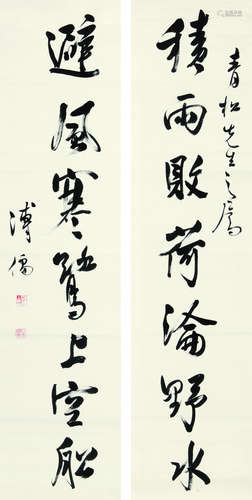 青松先生之屬
積雨敗荷淪野水
避風寒鷺上空船
溥儒